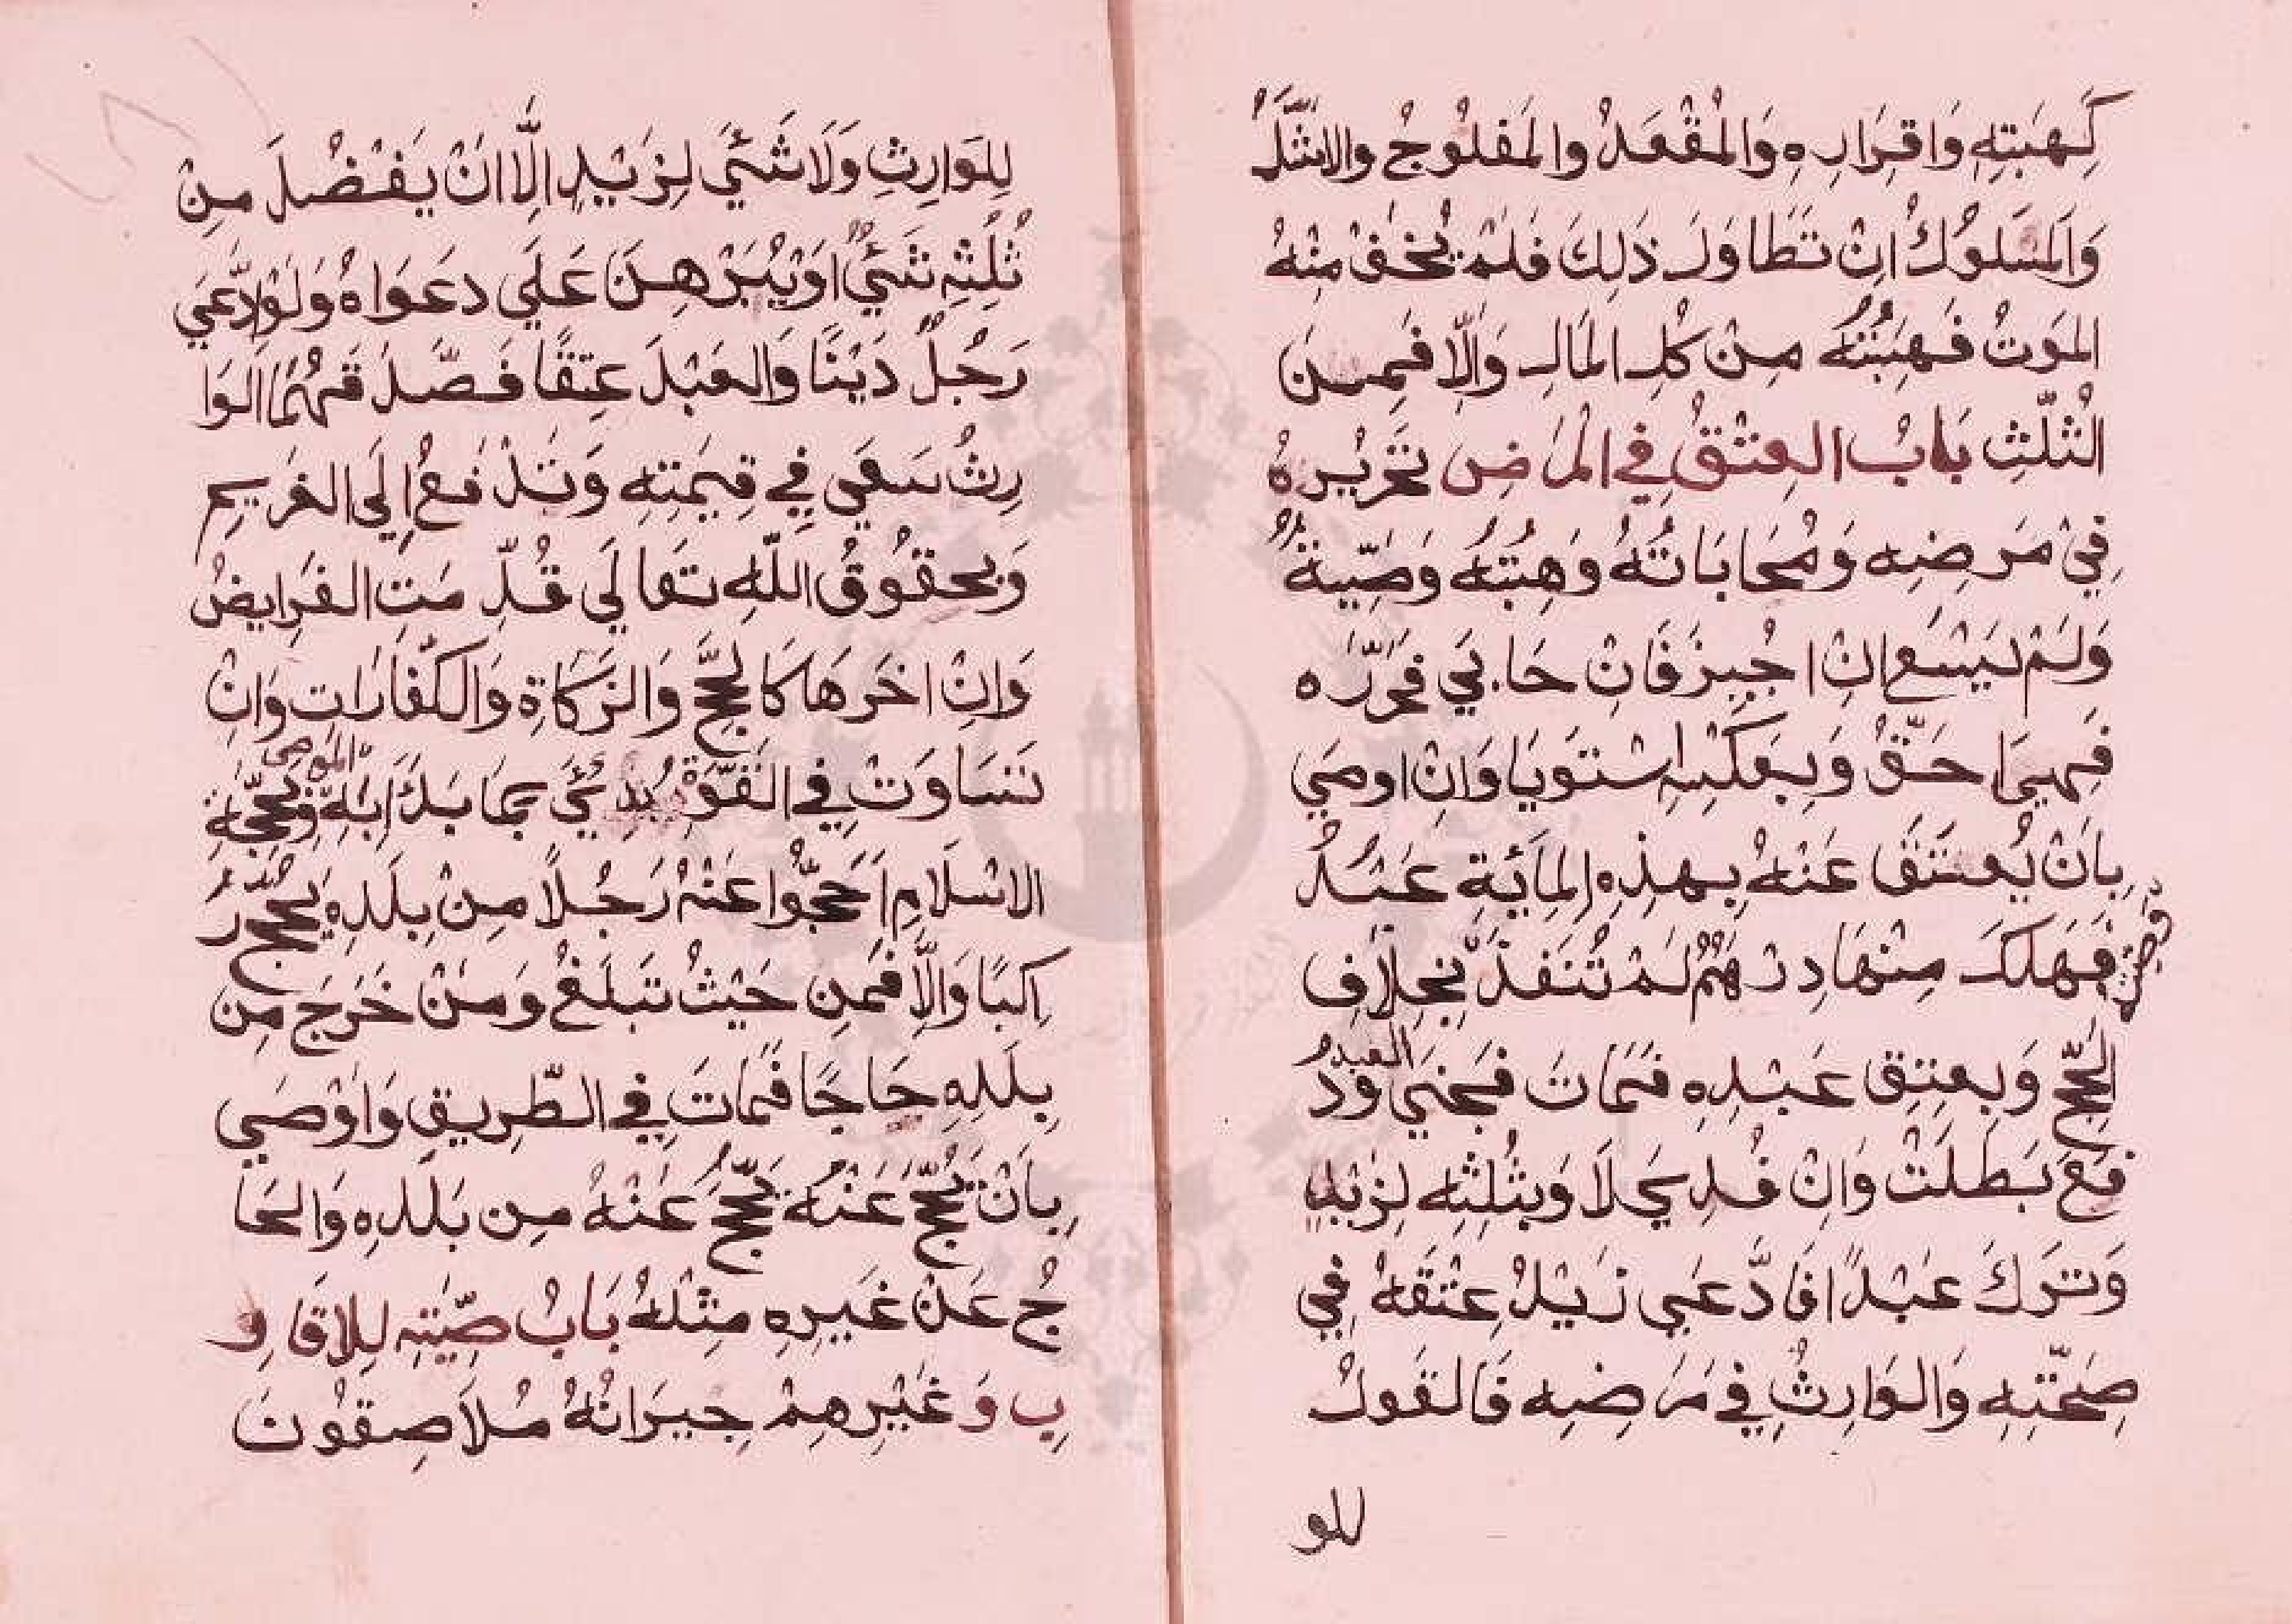 كَهِبَتِهِ وَاقِرَارِهِ وَالْمُقْعَدُ والمَفلُوجُ والاشَلُّ
وَالمَسْلوُكُ اِنْ تَطَاوَلَ ذَلِكَ فَلَمْ يُخَفْ مِنْهُ
الموَتُ فَهِبَتُهُ مِنْ كُلِ المَالِ وَاِلّا فَمِنَ
الثُلُثِ بَابُ العِتْقُ فِي المَرَضِ تَحْرِيْرهُ
فِيْ مَرَضِه وَمُحَابَاتُهُ وَهِبَتُهُ وَصِّيةٌ
وَلَمْ يَسْعَ اِنْ اجُيِزَ فَاِنْ حَابَي فَحَرَّرَه
فَهِيَ اَحَقُّ وَبِعَكْسِهِ اسْتَوَيَا وَاِنْ اوصَي
بِاَنْ يُعتَقَ عَنْهُ بِهذِهِ المِايَةِ عَبْدٌ
فَهَلَكَ مِنْهَا دِرْهَمٌ لَمْ تُنَفذَّ بِخِلَافِ
الحَجِّ وَبِعِتِقِ عَبْدِهِ فَمَاتَ فَجَنَي العبدُ وَدُ
فِعَ بَطَلَتْ وَاِنْ فُدِيَ لَا وَبثُلُثِه لِزَيْدٍ
وَتَرَكَ عَبْدًا فَادَّعَي زَيْدٌ عِتْقَهُ فِي
صِحَّتِهِ وَالوَارِثُ فِي مَرَضِه فَالقَولُ
للو
لِلوَارِثِ وَلَا شَئَي لِزَيْدٍ اِلَّا اَنْ يَفْضُلَ مِنْ
ثُلُثِهِ شَئٌي اَوْ يُبَرْهِنَ عَلَي دعَوَاهُ وَلَوْ ادَّعَي
رَجُلٌ دَيْنًا وَالعَبْدَ عِتقًا فَصَّدَقَهُمَا الَوا
رِثُ سَعَي فِي قِيمَتِه وَتُدْفَعُ اِلَي الغَرِيمِ
وَبحقوُقُ اللّهِ تعَالَي قُدِّمَتِ الفَرايِضُ
وَاِنْ اخَرهَا كَالحَجِّ وَالزَكَاةِ وَالكَفّارَاتِ وَاِنْ
تَسَاوَتْ فِي القُوَّةِ بُدِئَي بِمَا بَدَاَ بِهِ الموصى وَبِحَجّةِ
الاسْلَامِ اَحَجُّوا عَنْهُ رَجُلاً مِنْ بَلَدِهِ يَحُجُّ رَ
اكِبًا وَاِلَّا فَمِن حَيْثُ تَبلَغُ وَمَنْ خَرَجَ مِن
بلَدِهِ حَاجًا فَمَاتَ فِي الطَّرِيقِ وَاَوْصَي
بِاَنْ يُحَجَّ عَنْهُ يُحَجُّ عَنْهُ مِن بَلَدِه وَالحَا
جُ عَنْ غَيرِهِ مِثْلُهُ بَابُ صِّيَتِه لِلاقَارِ
بِ وَغَيْرِهِمْ جِيرَانُهُ مُلَاصِقوُنَ